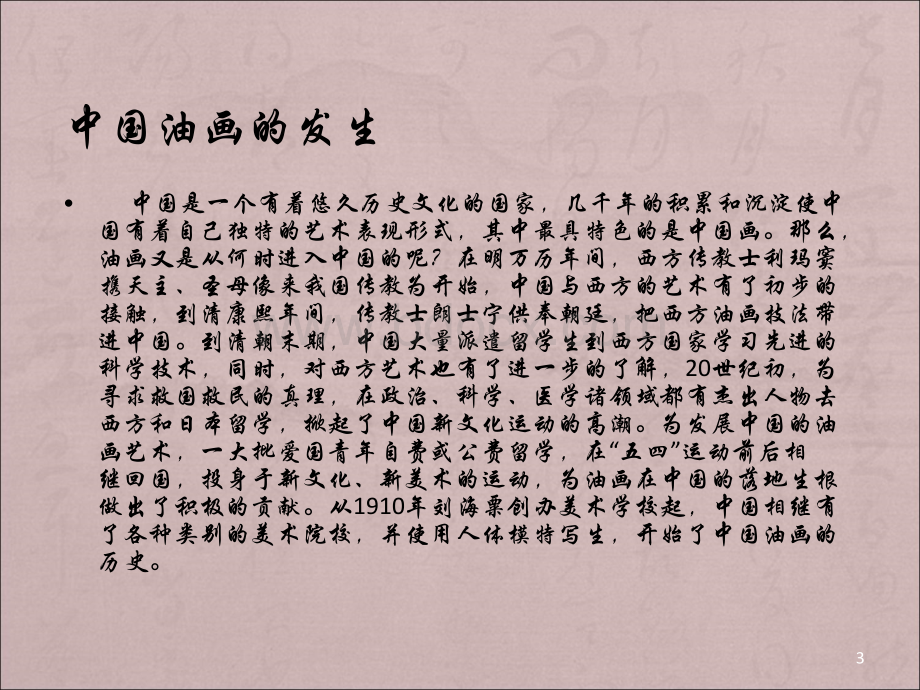 中国油画的发生
• 中国是一个有着悠久历史文化的国家，几千年的积累和沉淀使中
国有着自己独特的艺术表现形式，其中最具特色的是中国画。那么，
油画又是从何时进入中国的呢？在明万历年间，西方传教士利玛窦
携天主、圣母像来我国传教为开始，中国与西方的艺术有了初步的
接触，到清康熙年间，传教士朗士宁供奉朝廷，把西方油画技法带
进中国。到清朝末期，中国大量派遣留学生到西方国家学习先进的
科学技术，同时，对西方艺术也有了进一步的了解，20世纪初，为
寻求救国救民的真理，在政治、科学、医学诸领域都有杰出人物去
西方和日本留学，掀起了中国新文化运动的高潮。为发展中国的油
画艺术，一大批爱国青年自费或公费留学，在“五四”运动前后相
继回国，投身于新文化、新美术的运动，为油画在中国的落地生根
做出了积极的贡献。从1910年刘海粟创办美术学校起，中国相继有
了各种类别的美术院校，并使用人体模特写生，开始了中国油画的
历史。
3